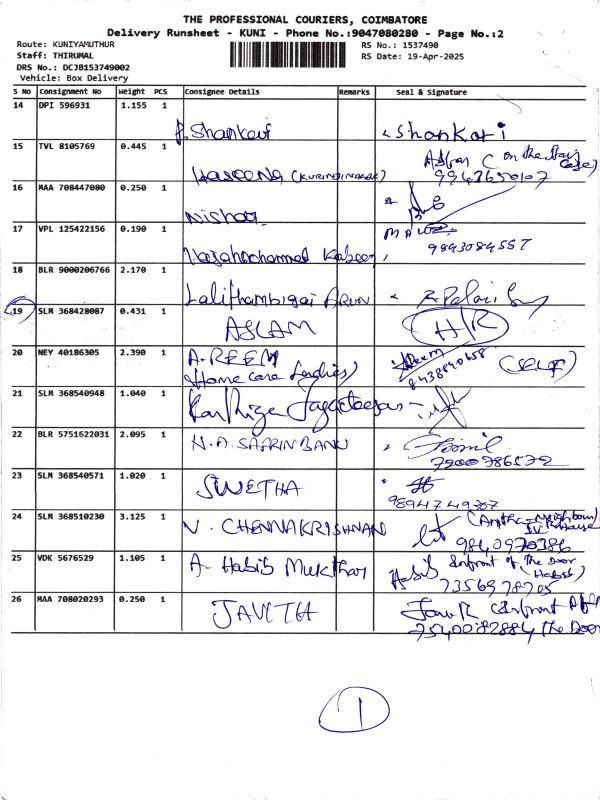 THE PROFESSIONAL COURIERS, COIMBATORE
Delivery Runsheet - KUNI - Phone No.:9047080280 - Page No.:2
Route: KUNIYAMUTHUR
Staff: THIRUMAL
DRS No.: DCJB153749002
Vehicle: Box Delivery
RS No.: 1537490
RS Date: 19-Apr-2025
S No Consignment No Weight PCS Consignee Details Remarks Seal & Signature
14 DPI 596931 1.155 1
P. Shankari Shankari
15 TVL 8105769 0.445 1
Haseena (KURINJINAGAR) (on the Stair Case)
9943650107
16 MAA 708447080 0.250 1
Nishar
17 VPL 125422156 0.190 1
Kabeer 9843084557
18 BLR 9000206766 2.170 1
Lalithambigai ARUN
19 SLM 368428087 0.431 1
ASLAM H/R
20 NEY 40186305 2.390 1
A. REEM Reem 8438840658 (SELF)
Home Care Ladies)
21 SLM 368540948 1.040 1
Karthiga Jagadeesan
22 BLR 5751622031 2.095 1
N.A. SAFRIN BANU
7200786572
23 SLM 368540571 1.020 1
SWETHA
9894749307
24 SLM 368510230 3.125 1
V. CHENNAKRISHNAN
9840970386
25 VDK 5676529 1.105 1
A. Habib Mukthar Habib Infront of The Door (Habib)
7356978705
26 MAA 708020293 0.250 1
JAVITH Infront of
7540082884 The Door
1